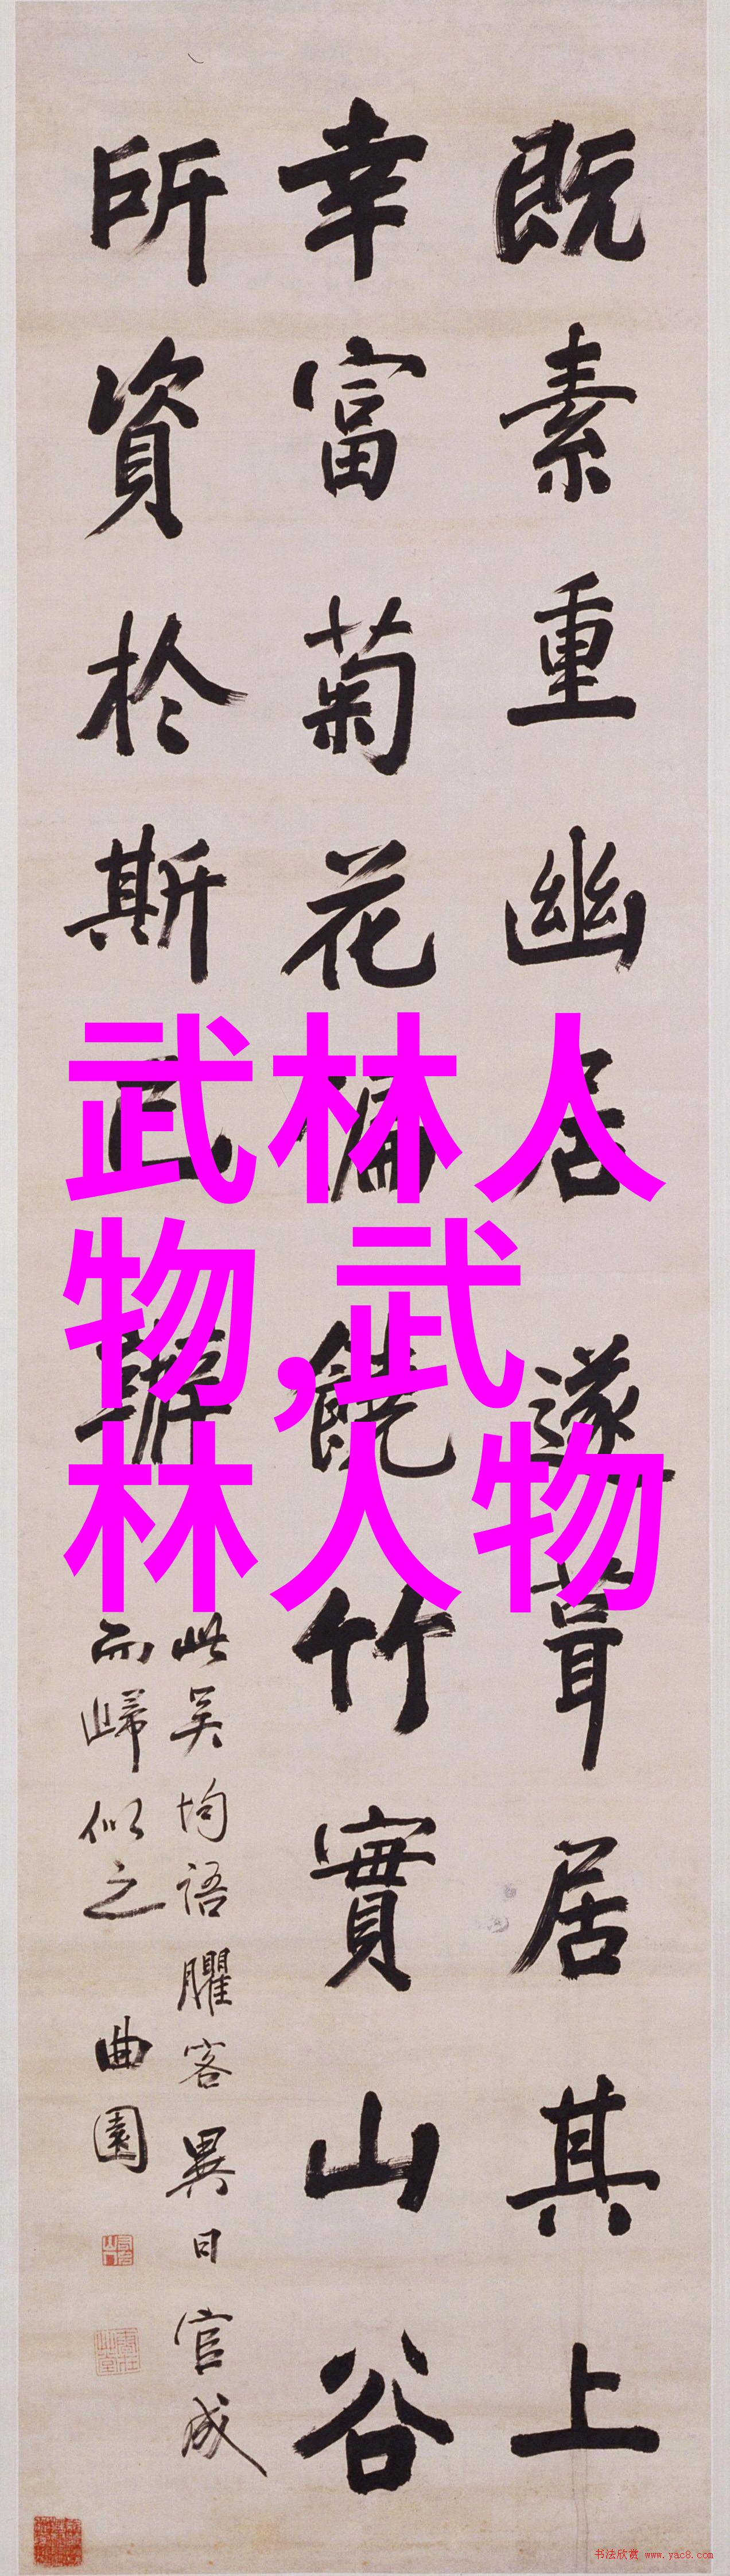 既素重幽居遂葺居其上
幸富菊花偏饒竹實山谷
所資於斯已辦
此吴均語臞客異日官成
而歸似之
曲園
武林人
物,武
林人物
书法欣赏 www.yac8.com